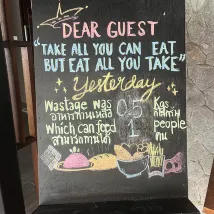 DEAR GUEST
"TAKE ALL YOU CAN EAT
BUT EAT ALL YOU TAKE"
Yesterday
Wastage was 0.5 Kgs
อาหารที่เหลือ
Which can feed 1 people
สามารถทานได้ คน